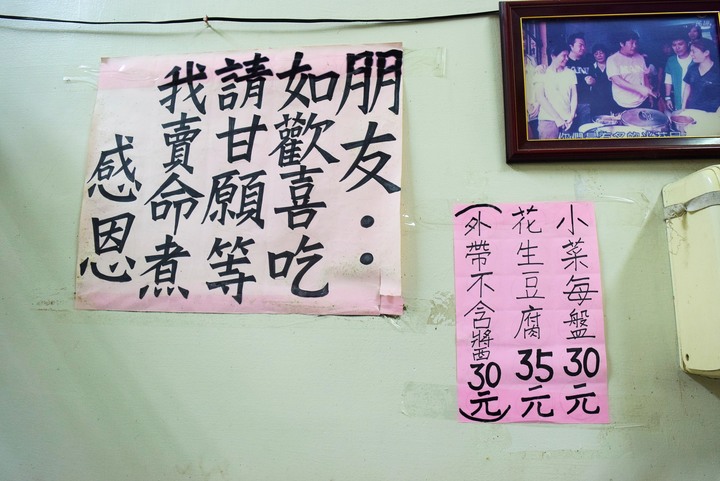 朋友：
如歡喜吃
請甘願等
我賣命煮
感恩
小菜每盤30元
花生豆腐35元
（外帶不含醬30元）